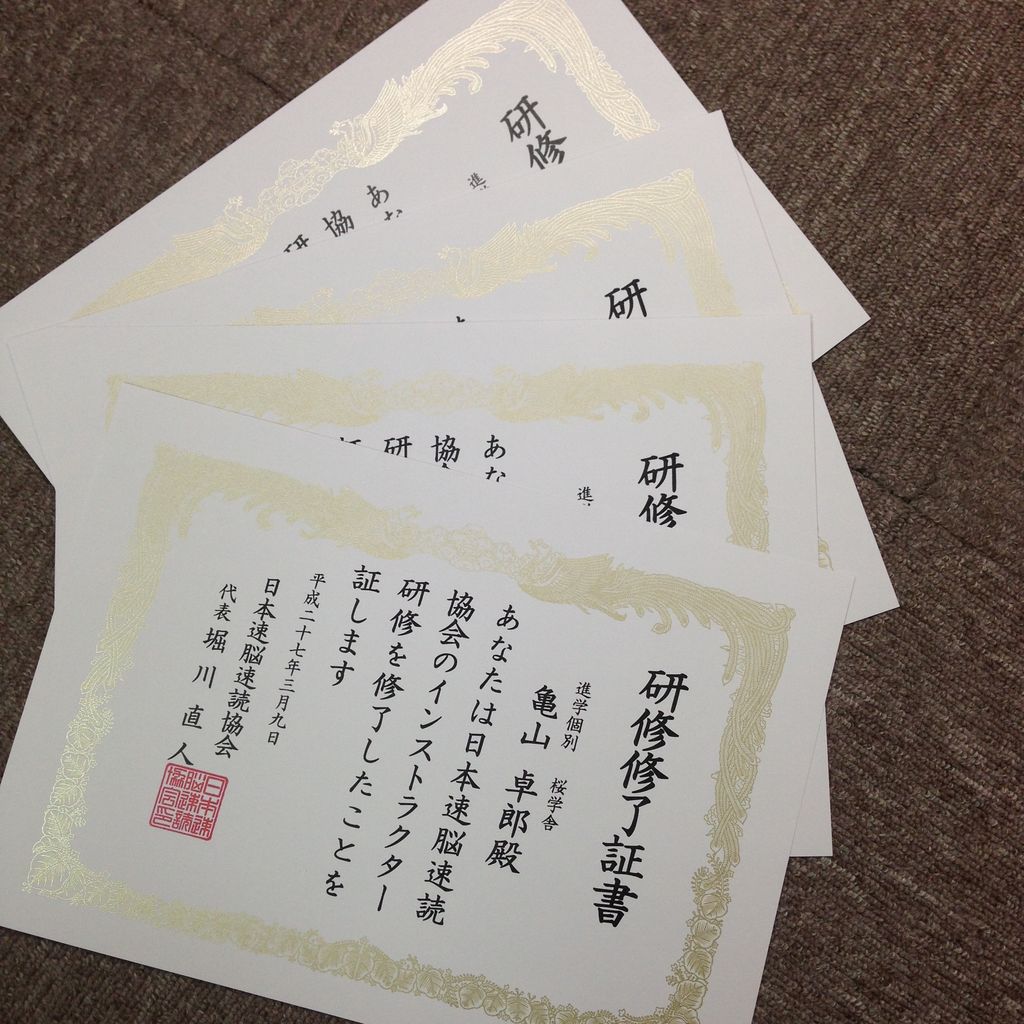 研修
進
あな
協
研
研
研修
進
あな
協
研
研修修了証書
進学個別 桜学舎
亀山 卓郎殿
あなたは日本速脳速読
協会のインストラクター
研修を修了したことを
証します
平成二十七年三月九日
日本速脳速読協会
代表 堀川直人
日本速
脳速読
協会印